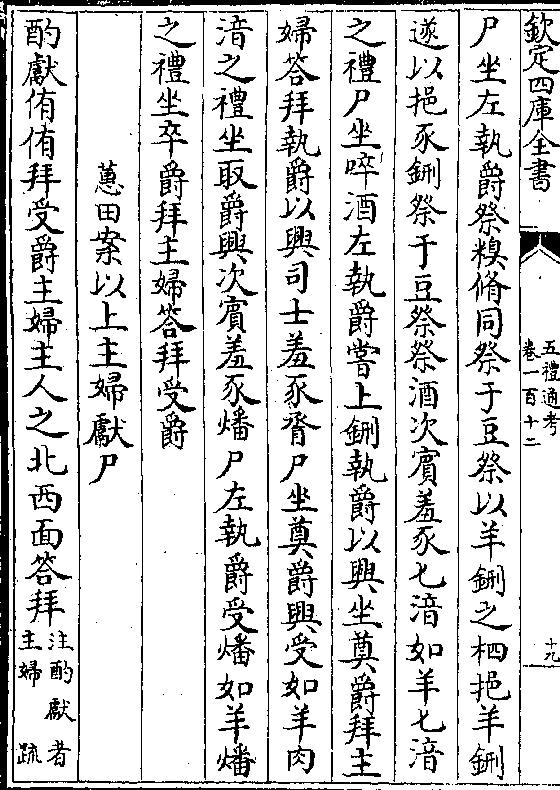 欽定四庫全書
五禮通考
卷一百十二
十九
尸坐左執爵祭糗脩同祭于豆祭以羊鉶之柶挹羊鉶
遂以挹豕鉶祭于豆祭祭酒次賓羞豕匕湆如羊匕湆
之禮尸坐啐酒左執爵嘗上鉶執爵以興坐奠爵拜主
婦答拜執爵以興司士羞豕脀尸坐奠爵興受如羊肉
湆之禮坐取爵興次賓羞豕燔尸左執爵受燔如羊燔
之禮坐卒爵拜主婦答拜受爵
蕙田案以上主婦獻尸
酌獻侑侑拜受爵主婦主人之北西面答拜
注酌獻者
主婦 疏